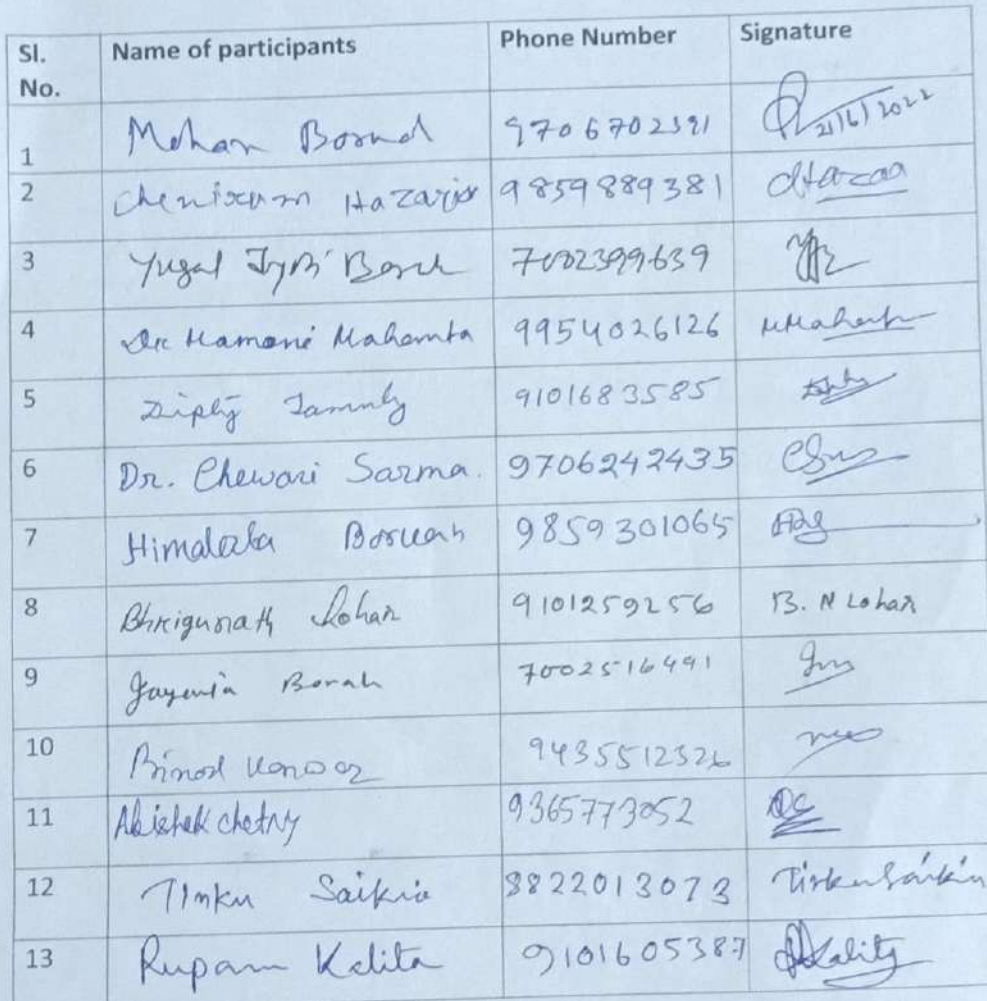 Sl. No. Name of participants Phone Number Signature
1 Mohan 9706702391 21/6/2022
2 Hazarir 9859889381
3 Yugal 7002399639
4 Dr. Mamoni Mahanta 9954026126
5 9101683585
6 Dr. Chewari Sarma. 9706242435
7 Boruah 9859301065
8 Bhrigunath Lohar 9101259256 B. N Lohar
9 Borah 7002516491
10 Binod Konwar 9435512326
11 Abishek chetry 9365773052
12 Tinku Saikia 8822013073 Tinku Saikia
13 Rupam Kalita 9101605387 Kalita